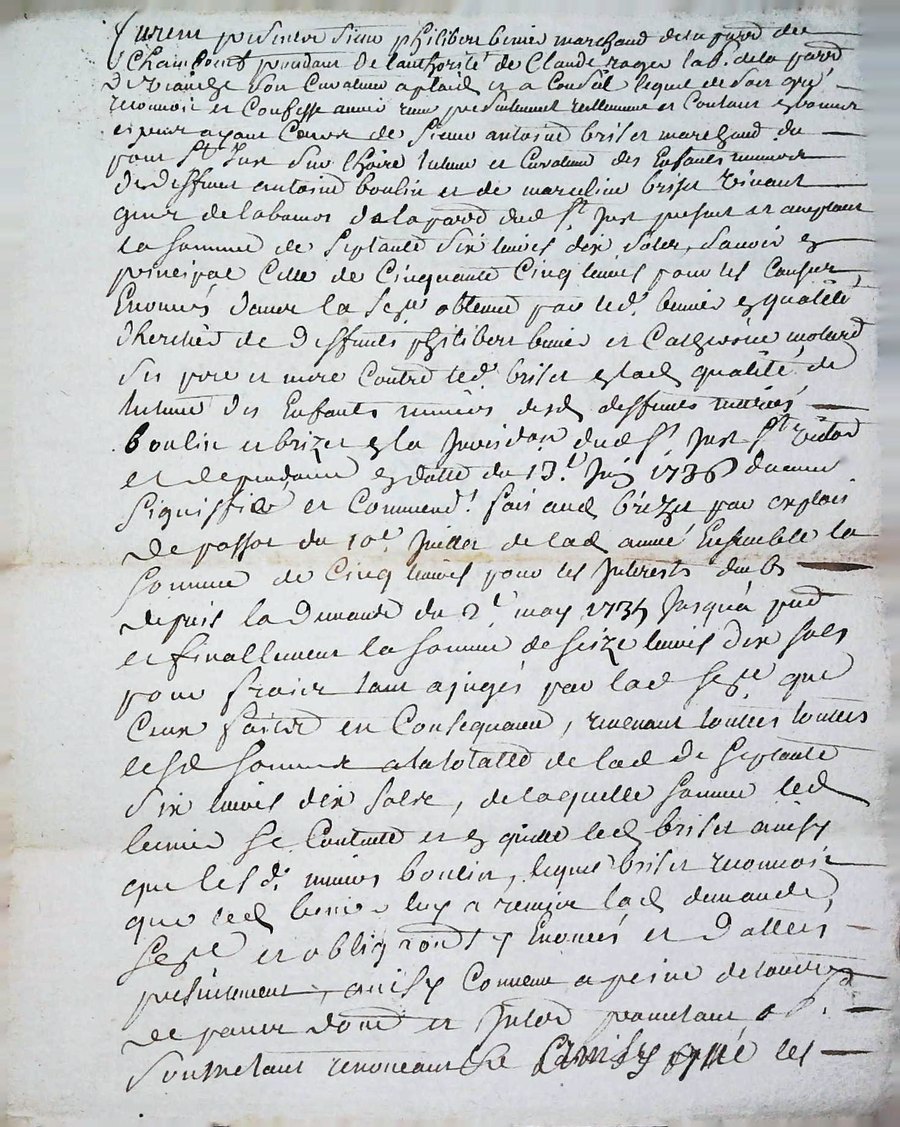 furent présents sieur philibert benier marchand de la parr de
Chambeuf procédant de l'authorité de Claude roger lab. de la parr
de son Curateur a plaid et a Conseil lequel de son gré
reconnoit et Confesse avoir reçu présentement reellement et Contant en bonnes
espèces ayant Cours de sieur antoine briset marchand du
pont St Just sur lhoire tuteur et Curateur des Enfants mineurs
de deffunt antoine boulin et de marceline briset vivant
de la parr dud St Just présent et acceptant
la somme de septante six livres dix sols, savoir en
principal Celle de Cinquante Cinq livres pour les Causes
Enoncés dans la Sece obtenue par led. benier en qualité
dherither de deffunts philibert benier et Catherine molard
ses pere et mere Contre led. briset en lad qualité de
tuteur des Enfants mineurs desd deffunts mariés
boulin et brizet en la Jurisdon dud St Just St victor
et dependance en datte du 13e Juin 1736 duement
signiffiée et Commend.t fait aud brizet par exploit
de passot du 10e Juillet de lad année Ensemble la
somme de Cinq livres pour les Interests
depuis la Demande du 2e may 1735 Jusqu'a pnt
et finallement la somme de seize livres dix sols
pour fraix tant ajugés par lad Sece que
Ceux faits en Consequance, revenant touttes
lesd sommes a la totalle de lad de septante
six livres dix sols, de laquelle somme led
benier se Contente et en quitte led briset ainsy
que lesd. mineurs boulin, lequel briset reconnoit
que led benier luy a remise lad demande,
Sece et y Enoncés et Dattées
présentement, ainsy Convenu a peine de tous
depens dom et Inter promettant ob.
soumettant renonceant &e les